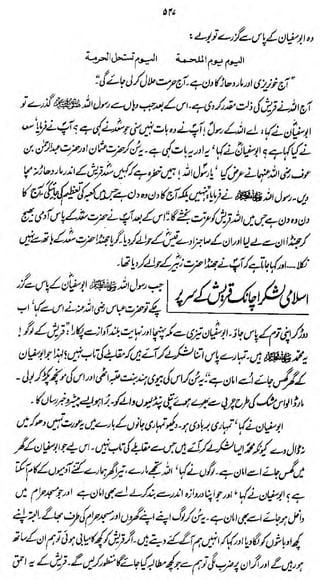 ۵۴۷
وہ ابوسفیان کے پاس سے گزرے تو بولے:
الیوم یوم الملحمة الیوم تستحل الحرمة
”آج خونریزی اور مار دھاڑ کا دن ہے۔ آج حرمت حلال کر لی جائے گی“
آج اللہ نے قریش کی ذلت مقدر کر دی ہے۔ اس کے بعد جب وہاں سے رسول اللہ ﷺ گذرے تو
ابوسفیان نے کہا: اے اللہ کے رسول! آپ نے وہ بات نہیں سنی جو سعد نے کہی ہے؟ آپ نے فرمایا سعد
نے کیا کہا ہے؟ ابوسفیان نے کہا ’یہ اور یہ بات کہی ہے۔ یہ سن کر حضرت عثمان اور حضرت عبدالرحمن بن
عوف رضی اللہ عنہما نے عرض کیا ’یا رسول اللہ! ہمیں خطرہ ہے کہ کہیں سعد قریش کے اندر مار دھاڑ نہ مچا
دیں۔ رسول اللہ ﷺ نے فرمایا نہیں بلکہ آج کا دن وہ دن ہے جس میں کعبہ کی تعظیم کی جائے گی۔ آج کا
دن وہ دن ہے جس میں اللہ قریش کو عزت بخشے گا“۔ اس کے بعد آپ نے حضرت سعد کے پاس آدمی بھیج
کر جھنڈا ان سے لے لیا اور ان کے صاحبزادے قیس کے حوالے کر دیا۔ گویا جھنڈا حضرت سعد کے ہاتھ سے نہیں
نکلا۔ اور کہا جاتا ہے کہ آپ نے جھنڈا حضرت زبیر کے حوالے کر دیا تھا۔
اسلامی لشکر اچانک قریش کے سر پر
جب رسول اللہ ﷺ ابوسفیان کے پاس سے گزر
چکے تو حضرت عباس رضی اللہ عنہ نے اس سے کہا ’اب
دوڑ کر اپنی قوم کے پاس جاؤ۔ ابوسفیان تیزی سے مکہ پہنچا اور نہایت بلند آواز سے پکارا: ”قریش کے لوگو!
یہ محمد ﷺ ہیں۔ تمہارے پاس اتنا لشکر لے کر آئے ہیں کہ مقابلے کی تاب نہیں؛ لہٰذا جو ابوسفیان
کے گھر گھس جائے اسے امان ہے“۔ یہ سن کر اس کی بیوی ہند بنت عتبہ اٹھی اور اس کی مونچھ پکڑ کر بولی۔
مار ڈالو اس مشک کی طرح چربی سے بھرے ہوئے پتلی پنڈلیوں والے کو۔ برا ہو ایسے پیشرو خبر رساں کا۔
ابوسفیان نے کہا ’تمہاری بربادی ہو۔ دیکھو تمہاری جانوں کے بارے میں یہ عورت تمہیں دھوکہ میں
نہ ڈال دے کیونکہ محمد ایسا لشکر لے کر آئے ہیں جس سے مقابلے کی تاب نہیں۔ اس لیے جو ابوسفیان کے گھر
میں گھس جائے اسے امان ہے۔ لوگوں نے کہا ’اللہ تجھے مارے، تیرا گھر ہمارے کتنے آدمیوں کے کام آ سکتا
ہے؟ ابوسفیان نے کہا ’اور جو اپنا دروازہ اندر سے بند کر لے اسے بھی امان ہے اور جو مسجد حرام میں
داخل ہو جائے اسے بھی امان ہے۔ یہ سن کر لوگ اپنے اپنے گھروں اور مسجد حرام کی طرف بھاگے۔ البتہ اپنے
کچھ اوباشوں کو لگا دیا اور کہا کہ انہیں ہم آگے کئے دیتے ہیں۔ اگر قریش کو کچھ کامیابی ہوئی تو ہم ان کے ساتھ
ہو رہیں گے اور اگر ان پر ضرب لگی تو ہم سے جو کچھ مطالبہ کیا جائے گا منظور کر لیں گے۔ قریش کے یہ احمق